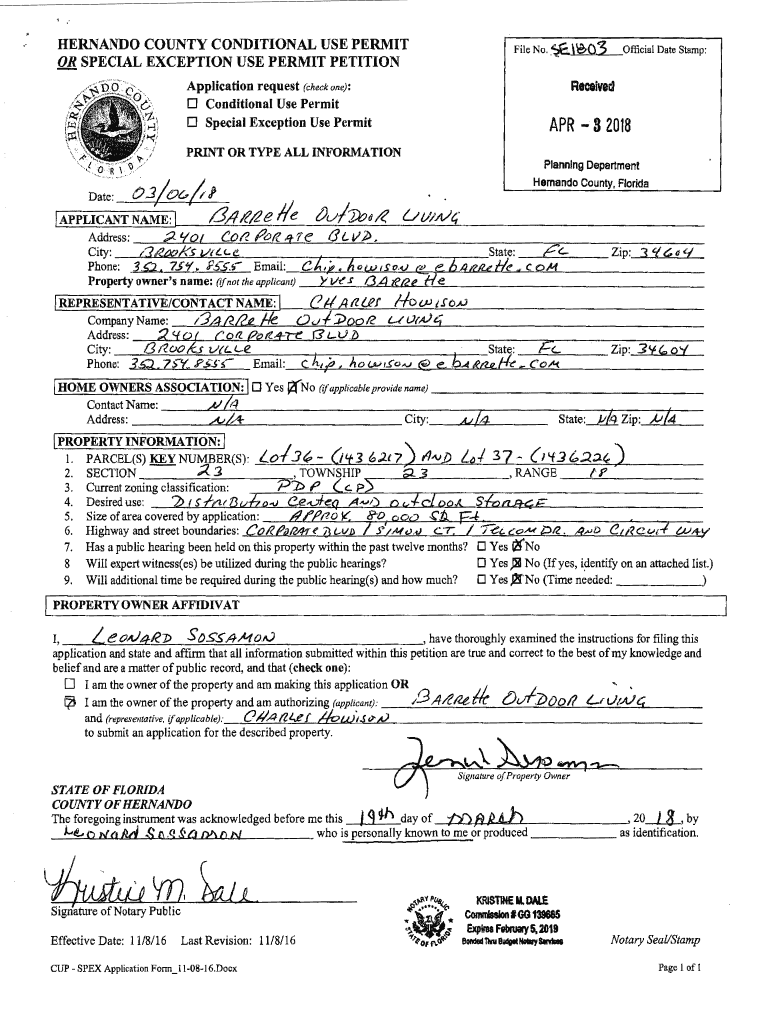 HERNANDO COUNTY CONDITIONAL USE PERMIT
OR SPECIAL EXCEPTION USE PERMIT PETITION
File No. SE1803 Official Date Stamp:
Application request (check one):
☐ Conditional Use Permit
☐ Special Exception Use Permit
PRINT OR TYPE ALL INFORMATION
Received
APR - 3 2018
Planning Department
Hernando County, Florida
HERNANDO COUNTY
FLORIDA
Date: 03/06/18
APPLICANT NAME: BARRette OutDOOR LIVING
Address: 2401 CORPORATE BLVD.
City: BROOKSVILLE State: FL Zip: 34604
Phone: 352.754.8555 Email: Chip.howison@ebARRette.com
Property owner's name: (if not the applicant) YVES BARRette
REPRESENTATIVE/CONTACT NAME: CHARLES HOWISON
Company Name: BARRette OutDOOR LIVING
Address: 2401 CORPORATE BLVD
City: BROOKSVILLE State: FL Zip: 34604
Phone: 352.754.8555 Email: chip.howison@ebARRette.com
HOME OWNERS ASSOCIATION: ☐ Yes ☒ No (if applicable provide name)
Contact Name: N/A
Address: N/A City: N/A State: N/A Zip: N/A
PROPERTY INFORMATION:
1. PARCEL(S) KEY NUMBER(S): Lot 36 - (1436217) AND Lot 37 - (1436226)
2. SECTION 23, TOWNSHIP 23, RANGE 18
3. Current zoning classification: PDP (CP)
4. Desired use: DISTRIBUTION CENTER AND OUTDOOR STORAGE
5. Size of area covered by application: APPROX. 80,000 SQ Ft.
6. Highway and street boundaries: CORPORATE BLVD / SIMON CT. / TELCOM DR. AND CIRCUIT WAY
7. Has a public hearing been held on this property within the past twelve months? ☐ Yes ☒ No
8 Will expert witness(es) be utilized during the public hearings? ☐ Yes ☒ No (If yes, identify on an attached list.)
9. Will additional time be required during the public hearing(s) and how much? ☐ Yes ☒ No (Time needed: )
PROPERTY OWNER AFFIDIVAT
I, LEONARD SOSSAMON, have thoroughly examined the instructions for filing this
application and state and affirm that all information submitted within this petition are true and correct to the best of my knowledge and
belief and are a matter of public record, and that (check one):
☐ I am the owner of the property and am making this application OR
☑ I am the owner of the property and am authorizing (applicant): BARRette OutDOOR LIVING
and (representative, if applicable): CHARLES HOWISON
to submit an application for the described property.
Signature of Property Owner
STATE OF FLORIDA
COUNTY OF HERNANDO
The foregoing instrument was acknowledged before me this 19th day of MARCH, 2018, by
LEONARD SOSSAMON who is personally known to me or produced as identification.
Kristine M. Dale
Signature of Notary Public
NOTARY PUBLIC
STATE OF FLORIDA
KRISTINE M. DALE
Commission # GG 139665
Expires February 5, 2019
Bonded Thru Budget Notary Services
Effective Date: 11/8/16 Last Revision: 11/8/16
Notary Seal/Stamp
CUP - SPEX Application Form_11-08-16.Docx
Page 1 of 1